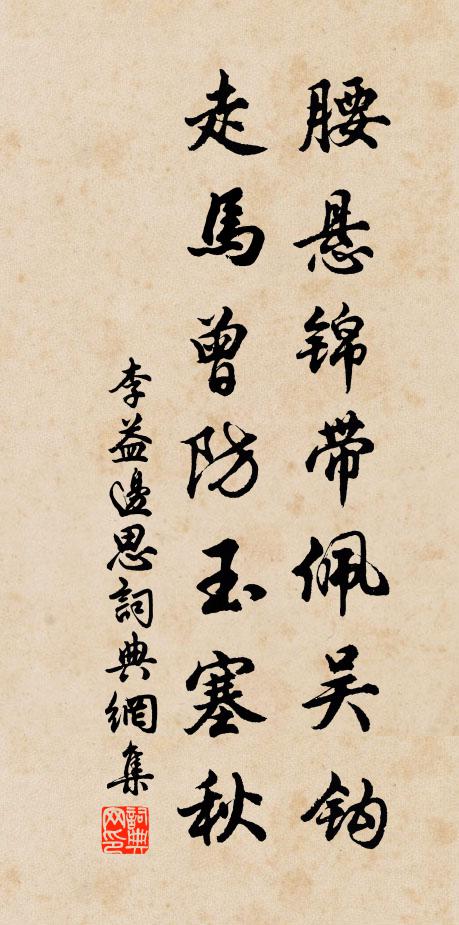 腰悬锦带佩吴钩
走马曾防玉塞秋
李益邊思詞典網集
詞典网印